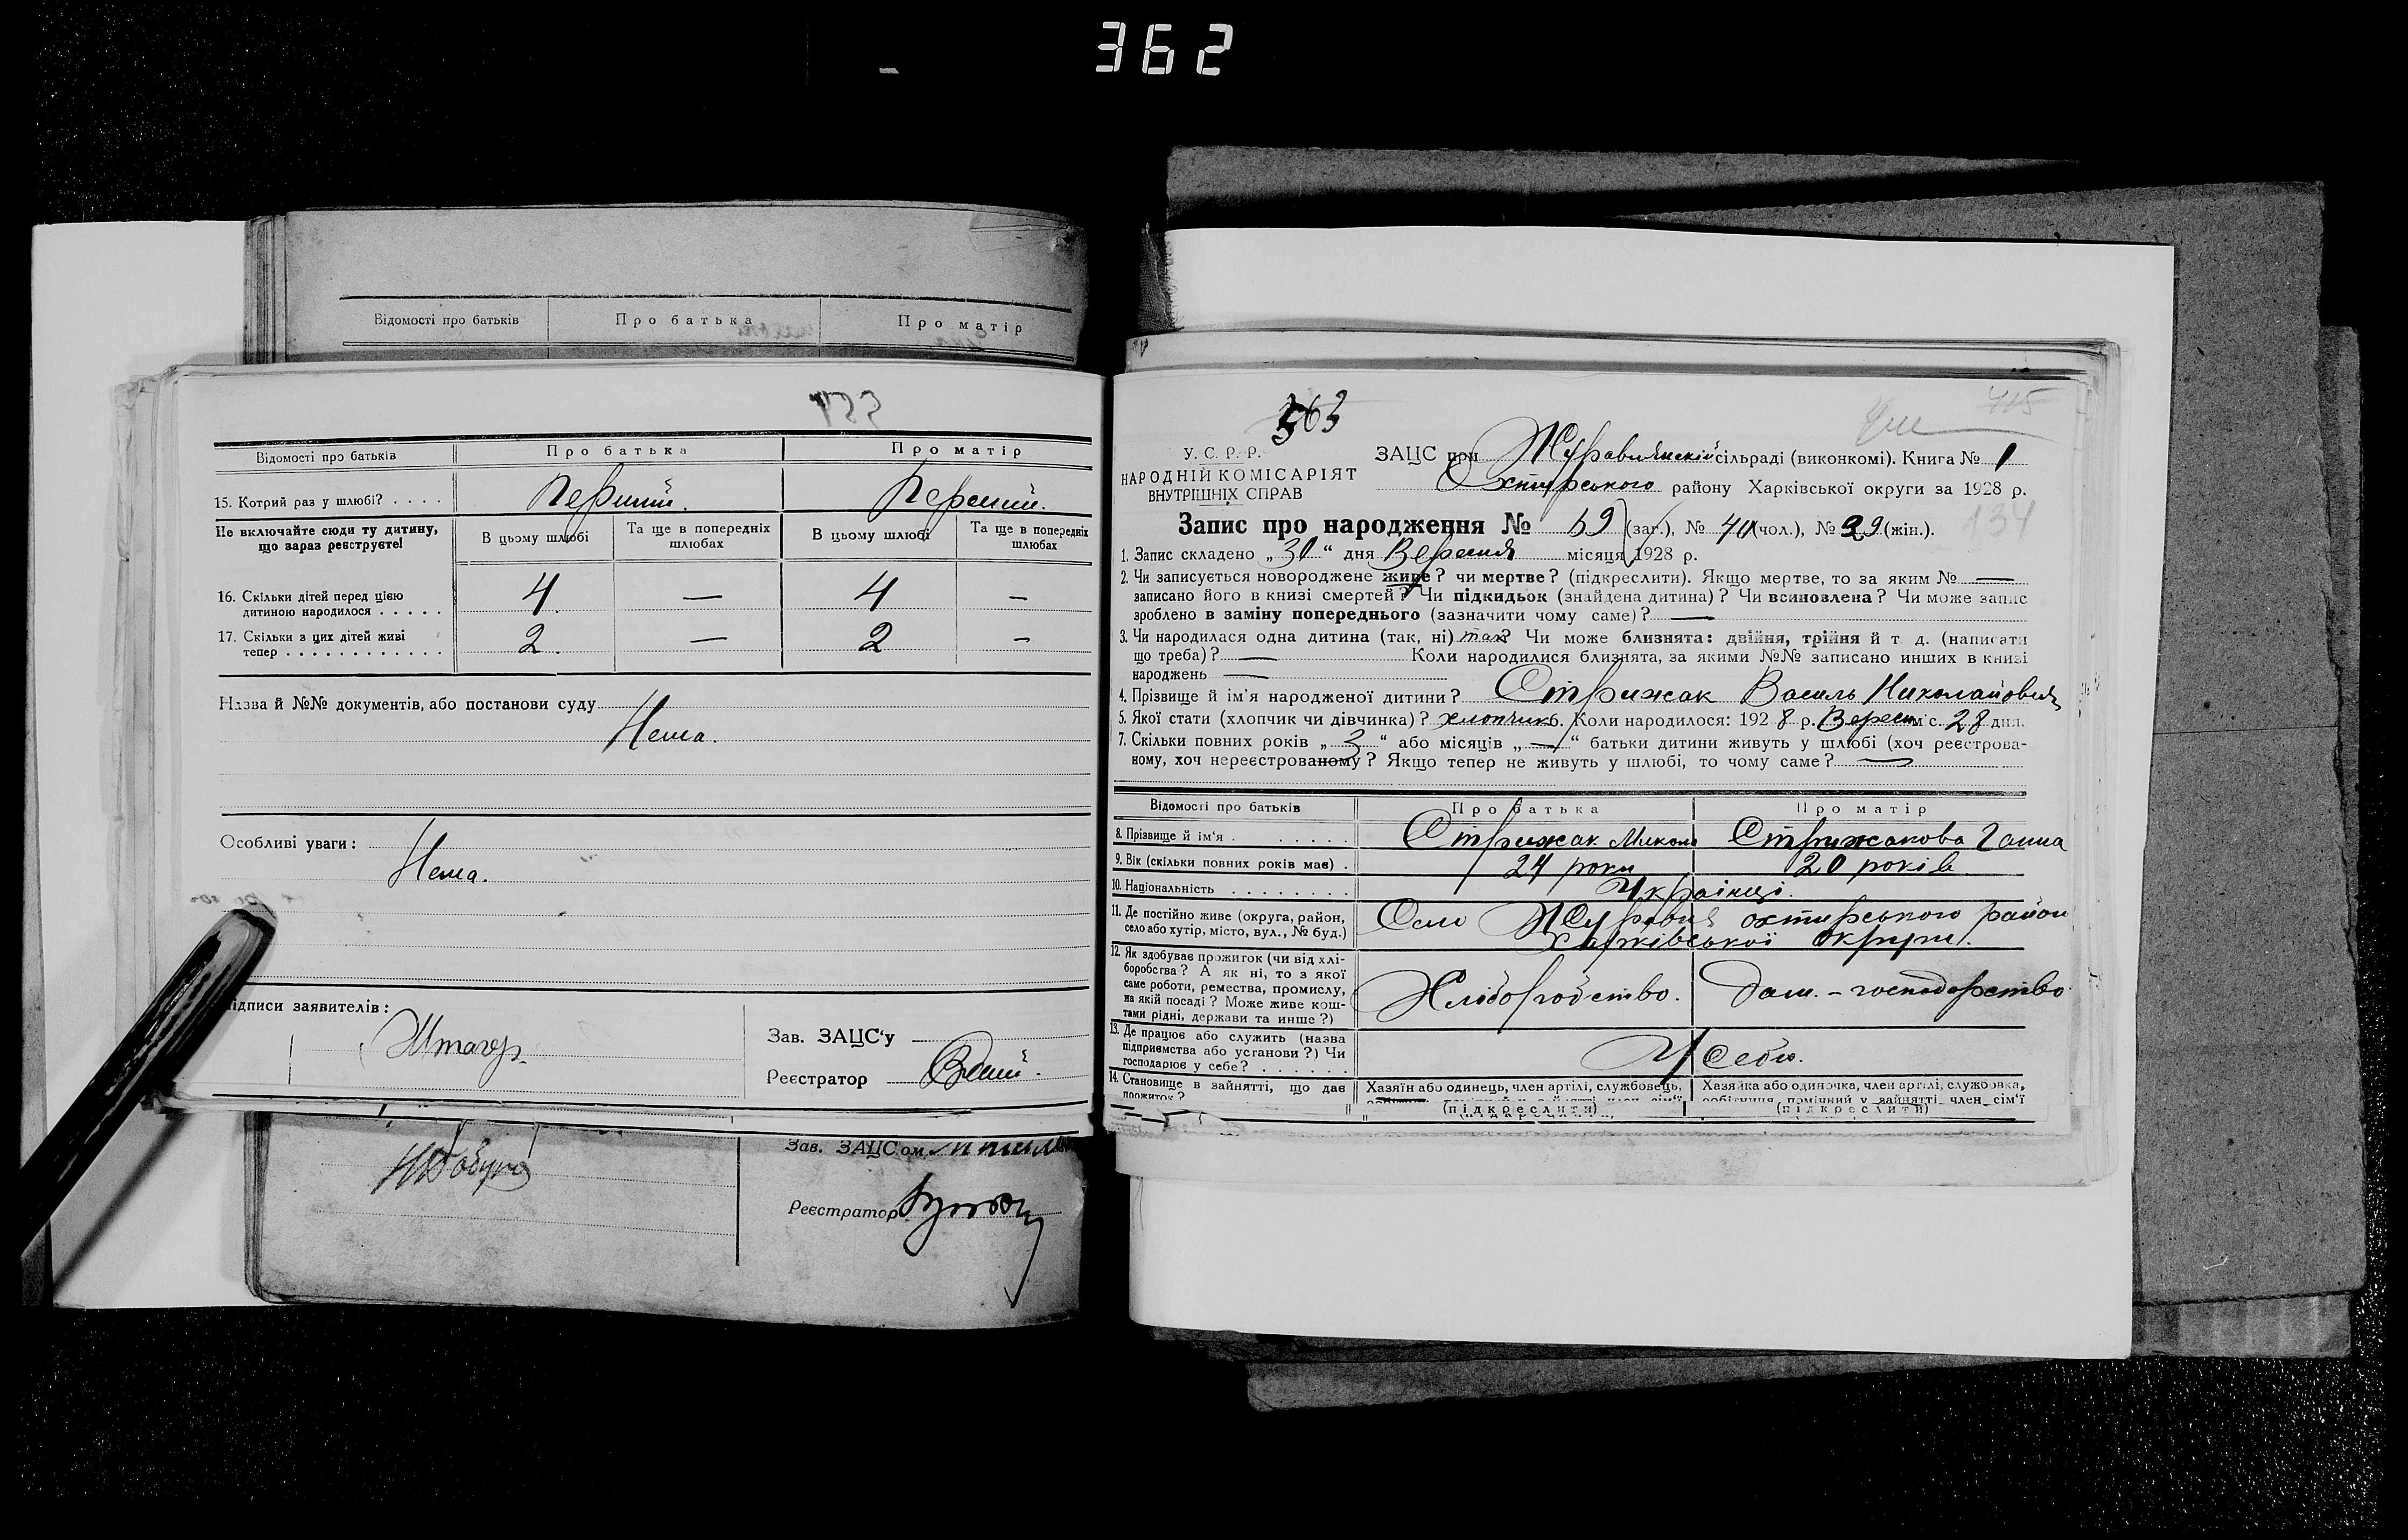 362
Відомості про батьків
Про батька
Про матір
133
Відомості про батьків
Про батька
Про матір
15. Котрий раз у шлюбі? . . . .
Перший.
Перший.
Не включайте сюди ту дитину,
що зараз реєструєте!
В цьому шлюбі
Та ще в попередніх
шлюбах
В цьому шлюбі
Та ще в попередніх
шлюбах
16. Скільки дітей перед цією
дитиною народилося . . . . .
4
—
4
—
17. Скільки з цих дітей живі
тепер . . . . . . . . . . . .
2
—
2
—
Назва й №№ документів, або постанови суду
Нема.
Особливі уваги:
Нема.
ідписи заявителів:
Зав. ЗАЦС'у
Реєстратор
Зав. ЗАЦСом
Реєстратор
363
415
У. С. Р. Р.
НАРОДНІЙ КОМІСАРІЯТ
ВНУТРІШНІХ СПРАВ
ЗАЦС при Журавлянскій сільраді (виконкомі). Книга № 1
Охтирського району Харківської округи за 1928 р.
134
Запис про народження № 69 (заг.), № 40 (чол.), № 29 (жін.).
1. Запис складено „30“ дня Вересня місяця 1928 р.
2. Чи записується новороджене живе? чи мертве? (підкреслити). Якщо мертве, то за яким № —
записано його в книзі смертей? Чи підкидьок (знайдена дитина)? Чи всиновлена? Чи може запис
зроблено в заміну попереднього (зазначити чому саме)? —
3. Чи народилася одна дитина (так, ні) так? Чи може близнята: двійня, трійня й т д. (написати
що треба)? — Коли народилися близнята, за якими №№ записано инших в книзі
народжень —
4. Прізвище й ім'я народженої дитини? Стрижак Василь Николайович
5. Якої стати (хлопчик чи дівчинка)? хлопчик 6. Коли народилося: 1928 р. Вересн м'с. 28 дня.
7. Скільки повних років „3“ або місяців „—“ батьки дитини живуть у шлюбі (хоч реєстрова-
ному, хоч нереєстрованому? Якщо тепер не живуть у шлюбі, то чому саме? —
Відомості про батьків
Про батька
Про матір
8. Прізвище й ім'я . . . . . .
Стрижак Микола
Стрижакова Ганна
9. Вік (скільки повних років має) .
24 роки
20 років
10. Національність . . . . . . . .
Українці.
11. Де постійно живе (округа, район,
село або хутір, місто, вул., № буд.)
Село Журавне охтирського район
Харківської округи.
12. Як здобуває прожиток (чи від хлі-
боробства? А як ні, то з якої
саме роботи, ремества, промислу,
на якій посаді? Може живе кош-
тами рідні, держави та инше?)
Хлібробство.
Дом.-господарство
13. Де працює або служить (назва
підприємства або установи?) Чи
господарює у себе? . . . . . .
У себе.
14. Становище в зайнятті, що дає
прожиток?
Хазяїн або одинець, член артілі, службовець,
(підкреслити)
Хазяйка або одиночка, член артілі, службовка,
робітниця, помічний у зайнятті член сім'ї
(підкреслити)